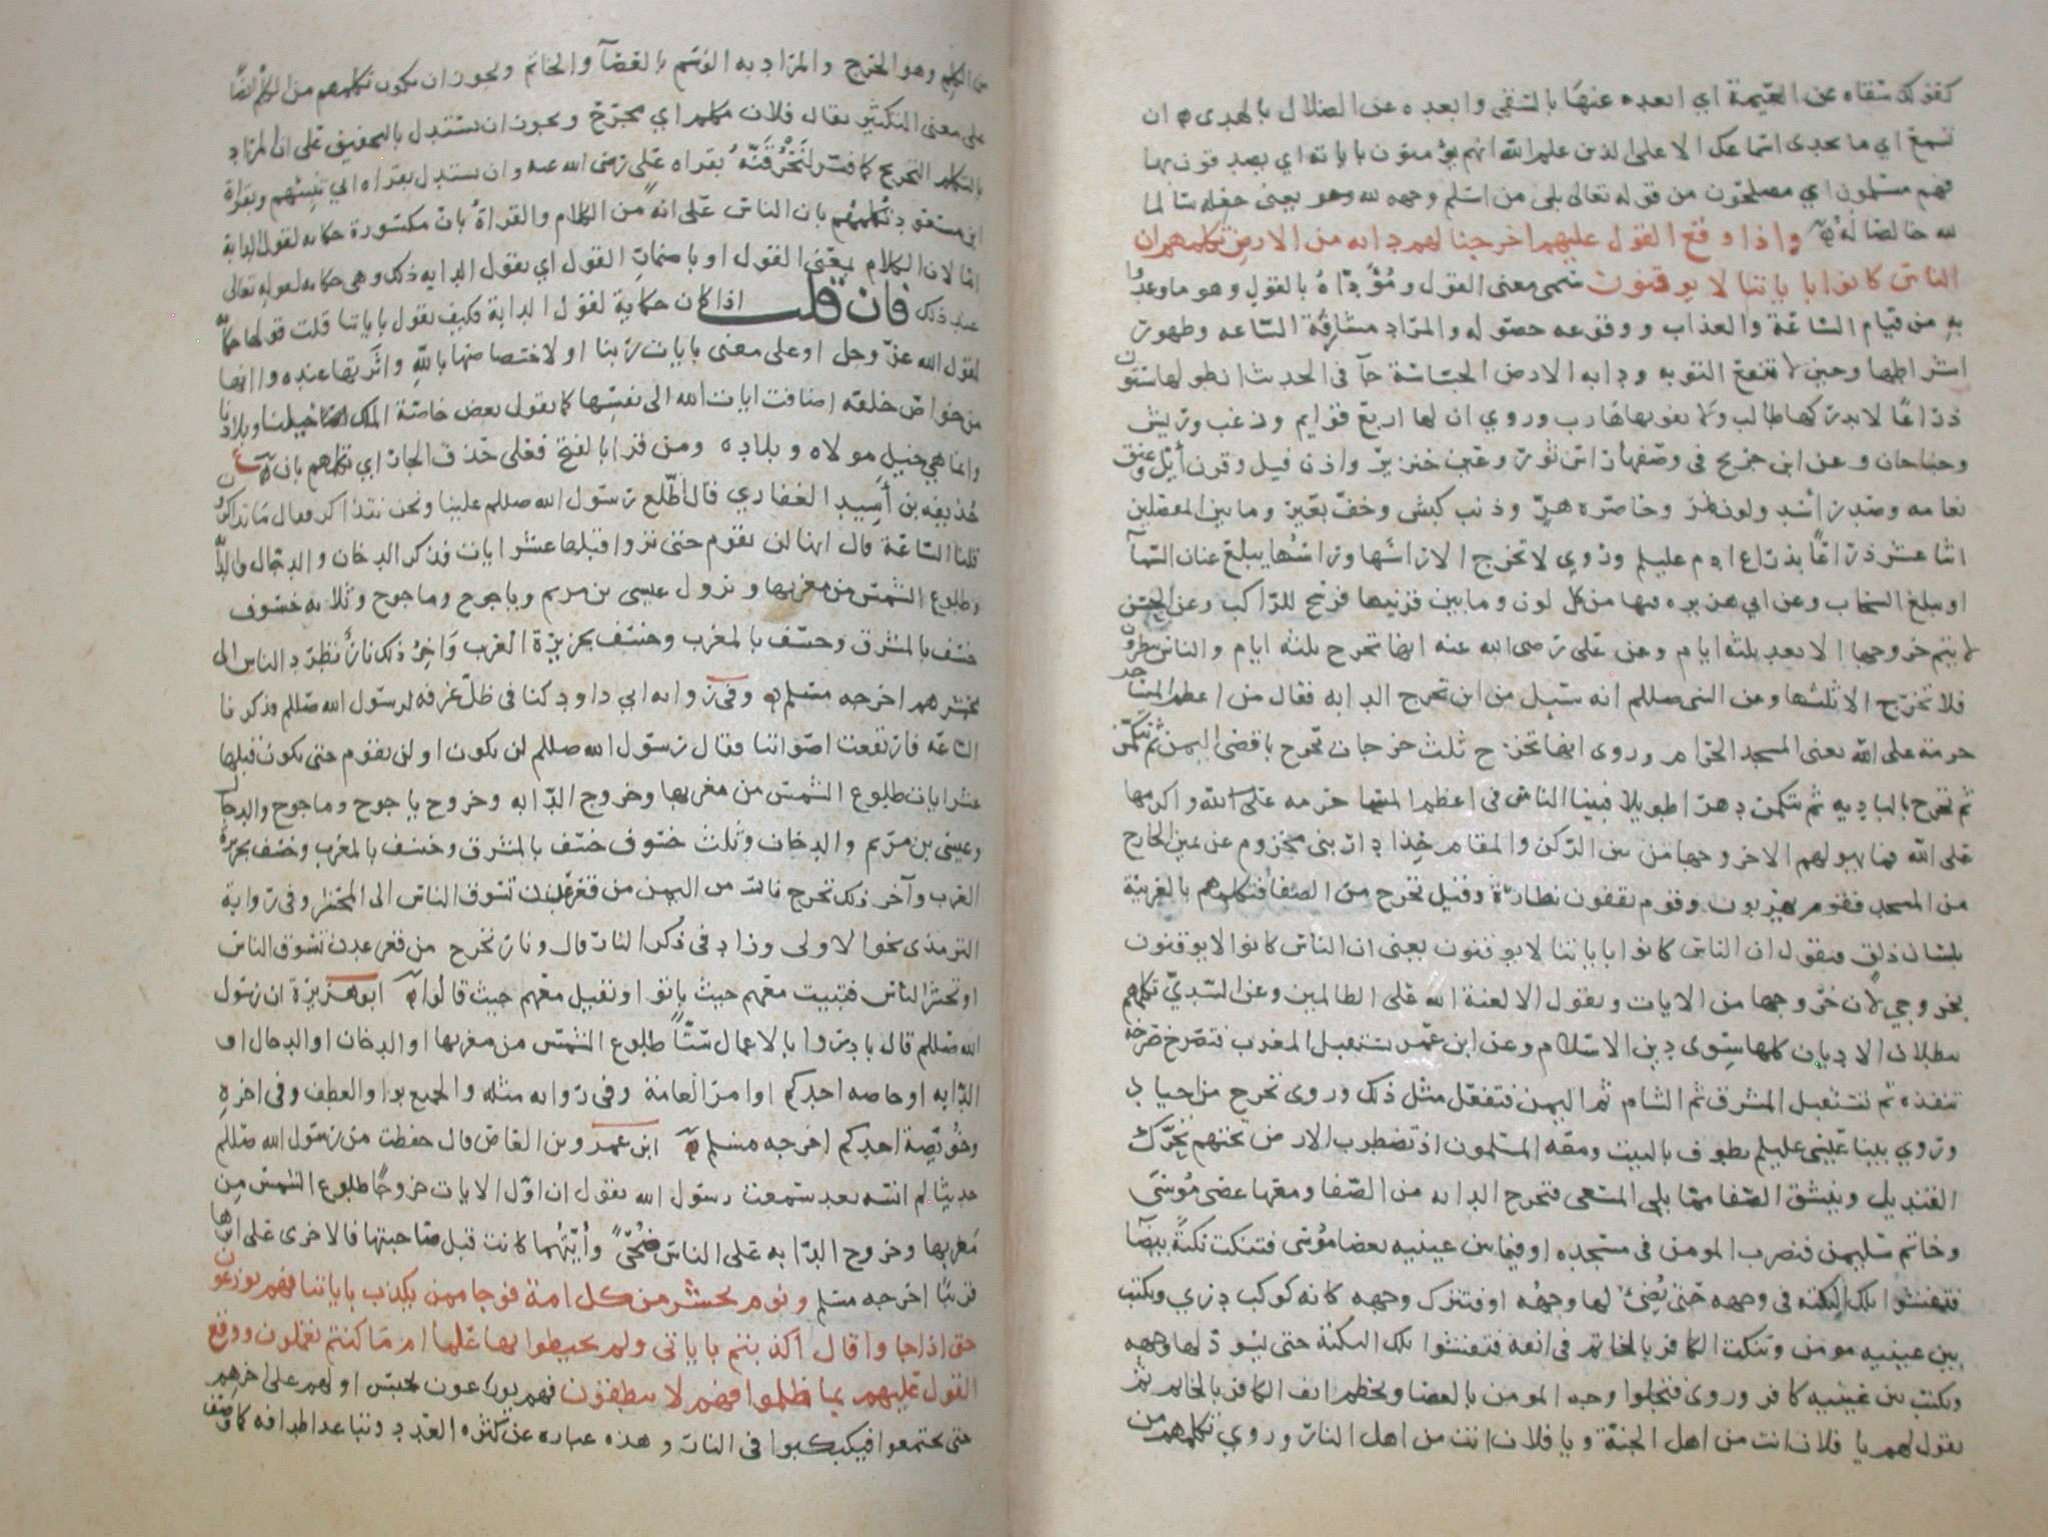 كقولك سقاه عن العيمة اي ابعده عنها بالسقي وابعده عن الضلال بالهدى ان
تسمع اي ما يجدى اسماعك الا على الذين علم الله انهم يؤمنون باياته اي يصدقون بها
فهم مسلمون اي مصلحون من قوله تعالى بلى من اسلم وجهه لله وهو يعني جعله سالما
لله خالصا له واذا وقع القول عليهم اخرجنا لهم دابة من الارض تكلمهم ان
الناس كانوا باياتنا لا يوقنون سمى معنى القول ومؤداه بالقول وهو ما وعدوا
به من قيام الساعة والعذاب ووقوعه حصوله والمراد مشارفة الساعه وظهور
اشراطها وحين لا تنفع التوبه ودابه الارض الجساسة جآ في الحديث ان طولها ستون
ذراعا لا يدركها طالب ولا يفوتها هارب وروي ان لها اربع قوايم وزغب وريش
وجناحان وعن ابن جريج في وصفها راس ثور وعين خنزير واذن فيل وقرن أيل وعنق
نعامه وصدر اسد ولون نمر وخاصره هر وذنب كبش وخف بعير وما بين المفصلين
اثنا عشر ذراعا بذراع ادم عليلم وروي لا تخرج الا راسها وراسها يبلغ عنان السمآ
او يبلغ السحاب وعن ابي هريره فيها من كل لون وما بين قرنيها فرسخ للراكب وعن الحسن
لا يتم خروجها الا بعد ثلثة ايام وعن علي رضى الله عنه انها تخرج ثلثه ايام والناس ينظرون
فلا تخرج الا ثلثها وعن النبى صللم انه سيل من اين تخرج الدابه فقال من اعظم المساجد
حرمة على الله يعنى المسجد الحرام وروى انها تخرج ثلث خرجات تخرج باقصى اليمن ثم تتكمن
ثم تخرج بالباديه ثم تتكمن دهرا طويلا فبينا الناس في اعظم المساجد حرمه على الله واكرمها
على الله فما يهولهم الا خروجها من بين الركن والمقام حذا دار بنى مخزوم عن يمين الخارج
من المسجد فقوم يهربون وقوم يقفون نظارة وقيل تخرج من الصفا فتكلمهم بالعربية
بلسان ذلق فتقول ان الناس كانوا باياتنا لا يوقنون يعنى ان الناس كانوا لا يوقنون
بخروجي لان خروجها من الايات وتقول الا لعنة الله على الظالمين وعن السدي تكلمهم
ببطلان الاديان كلها سوى دين الاسلام وعن ابن عمر تستقبل المغرب فتصرخ صرخة
تنفذه ثم تستقبل المشرق ثم الشام ثم اليمن فتفعل مثل ذلك وروى تخرج من اجياد
وروي بينا عيسى عليلم يطوف بالبيت ومعه المسلمون اذ تضطرب الارض تحتهم تحرك
القنديل وينشق الصفا مما يلي المسعى فتخرج الدابه من الصفا ومعها عصى موسى
وخاتم سليمن فتضرب المومن في مسجده او فيما بين عينيه بعصا موسى فتنكت نكتة بيضآ
فتفشوا تلك النكته في وجهه حتى يضئ لها وجهه او فتترك وجهه كانه كوكب دري وتكتب
بين عينيه مومن وتنكت الكافر بالخاتم في انفه فتفشوا تلك النكتة حتى يسود لها وجهه
وتكتب بين عينيه كافر وروى فتجلوا وجه المومن بالعصا وتخطم انف الكافر بالخاتم ثم
تقول لهم يا فلان انت من اهل الجنة ويا فلان انت من اهل النار وروي تكلمهم من
من الكلم وهو الجرح والمراد به الوسم بالعصآ والخاتم ويجوز ان يكون تكلمهم من الكلم ايضا
على معنى التكثير يقال فلان مكلم اي مجرح ويجوز ان يستدل بالتخفيف على ان المراد
بالتكليم التجريح كما فسر لنحرقنه بقراه على رضى الله عنه وان يستدل بقراه ابي تنبئهم وبقراة
ابن مسعود تكلمهم بان الناس على انه من الكلام والقراة بان مكسورة حكايه لقول الدابة
اما لان الكلام بمعنى القول او باضمار القول اي يقول الدابه ذلك وهى حكايه لقوله تعالى
عند ذلك فان قلت اذا كان حكاية لقول الدابة فكيف تقول باياتنا قلت قولها حكاية
لقول الله عز وجل او على معنى بايات ربنا او لاختصاصها بالله واثرتها عنده وانها
من خواص خلقه اضافت ايات الله الى نفسها كما يقول بعض خاصة الملك خيلنا وبلادنا
وانما هي خيل مولاه وبلاده ومن قرا بالفتح فعلى حذف الجار اي تكلمهم بان
حذيفه بن أسيد الغفاري قال اطلع رسول الله صللم علينا ونحن نتذاكر فقال ما تذاكرون
قلنا الساعة قال انها لن تقوم حتى تروا قبلها عشر ايات فذكر الدخان والدجال والدابة
وطلوع الشمس من مغربها ونزول عيسى بن مريم وياجوج وماجوج وثلاثه خسوف
خسف بالمشرق وخسف بالمغرب وخسف بجزيرة العرب وآخر ذلك نار تطرد الناس الى
محشرهم اخرجه مسلم وفي روايه ابي داود كنا في ظل غرفه لرسول الله صللم فذكرنا
الساعه فارتفعت اصواتنا فقال رسول الله صللم لن يكون او لن تقوم حتى يكون قبلها
عشر ايات طلوع الشمس من مغربها وخروج الدابه وخروج ياجوج وماجوج والدجال
وعيسى بن مريم والدخان وثلث خسوف خسف بالمشرق وخسف بالمغرب وخسف بجزيرة
العرب وآخر ذلك تخرج نار من اليمن من قعر عدن تسوق الناس الى المحشر وفي رواية
الترمذى نحوا الاولى وزاد في ذكر النار قال ونار تخرج من قعر عدن تسوق الناس
او تحشر الناس فتبيت معهم حيث باتوا وتقيل معهم حيث قالوا ابو هريرة ان رسول
الله صللم قال بادروا بالاعمال ستا طلوع الشمس من مغربها او الدخان او الدجال او
الدابه او خاصه احدكم او امر العامة وفي روايه مثله والجميع بواو العطف وفي اخره
وخويصة احدكم اخرجه مسلم ابن عمرو بن العاص قال حفظت من رسول الله صللم
حديثا لم انسه بعد سمعت رسول الله يقول ان اول الايات خروجا طلوع الشمس من
مغربها وخروج الدابه على الناس ضحى وأيتهما كانت قبل صاحبتها فالاخرى على اثرها
قريبا اخرجه مسلم ويوم نحشر من كل امة فوجا ممن يكذب باياتنا فهم يوزعون
حتى اذا جاوا قال اكذبتم باياتى ولم تحيطوا بها علما ام ما كنتم تعملون ووقع
القول عليهم بما ظلموا فهم لا ينطقون فهم يوزعون يحبس اولهم على اخرهم
حتى يجتمعوا فيكبكبوا في النار وهذه عباره عن كثره العدد وتباعد اطرافه كما وصف